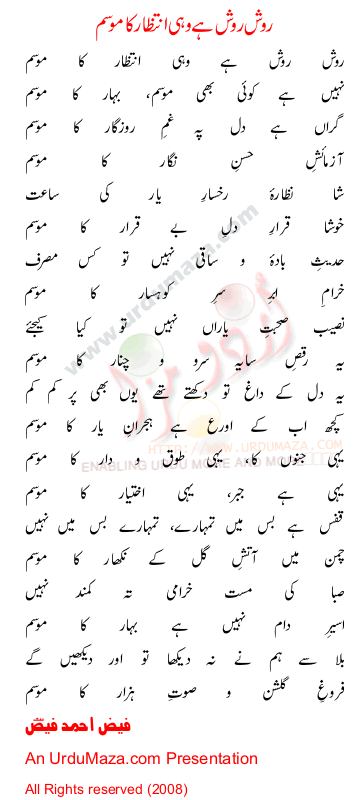 روش روش ہے وہی انتظار کا موسم
روش روش ہے وہی انتظار کا موسم
نہیں ہے کوئی بھی موسم، بہار کا موسم
گراں ہے دل پہ غمِ روزگار کا موسم
آزمائشِ حسنِ نگار کا موسم
شا نظارۂ رخسارِ یار کی ساعت
خوشا قرارِ دلِ بے قرار کا موسم
حدیثِ بادہ و ساقی نہیں تو کس مصرف
خرامِ ابرِ سرِ کوہسار کا موسم
نصیب صحبتِ یاراں نہیں تو کیا کیجئے
یہ رقصِ سایہ سرو و چنار کا موسم
یہ دل کے داغ تو دکھتے تھے یوں بھی پر کم کم
کچھ اب کے اورع ہے ہجرانِ یار کا موسم
یہی جنوں کا، یہی طوق و دار کا موسم
یہی ہے جبر، یہی اختیار کا موسم
قفس ہے بس میں تمہارے، تمہارے بس میں نہیں
چمن میں آتشِ گل کے نکھار کا موسم
صبا کی مست خرامی تہ کمند نہیں
اسیرِ دام نہیں ہے بہار کا موسم
بلا سے ہم نے نہ دیکھا تو اور دیکھیں گے
فروغِ گلشن و صوتِ ہزار کا موسم
فیض احمد فیض
An UrduMaza.com Presentation
All Rights reserved (2008)
www.urdumaza.com
اُردو مزا
HTTP://WWW.URDUMAZA.COM
ENABLING URDU MOVIE AND MO